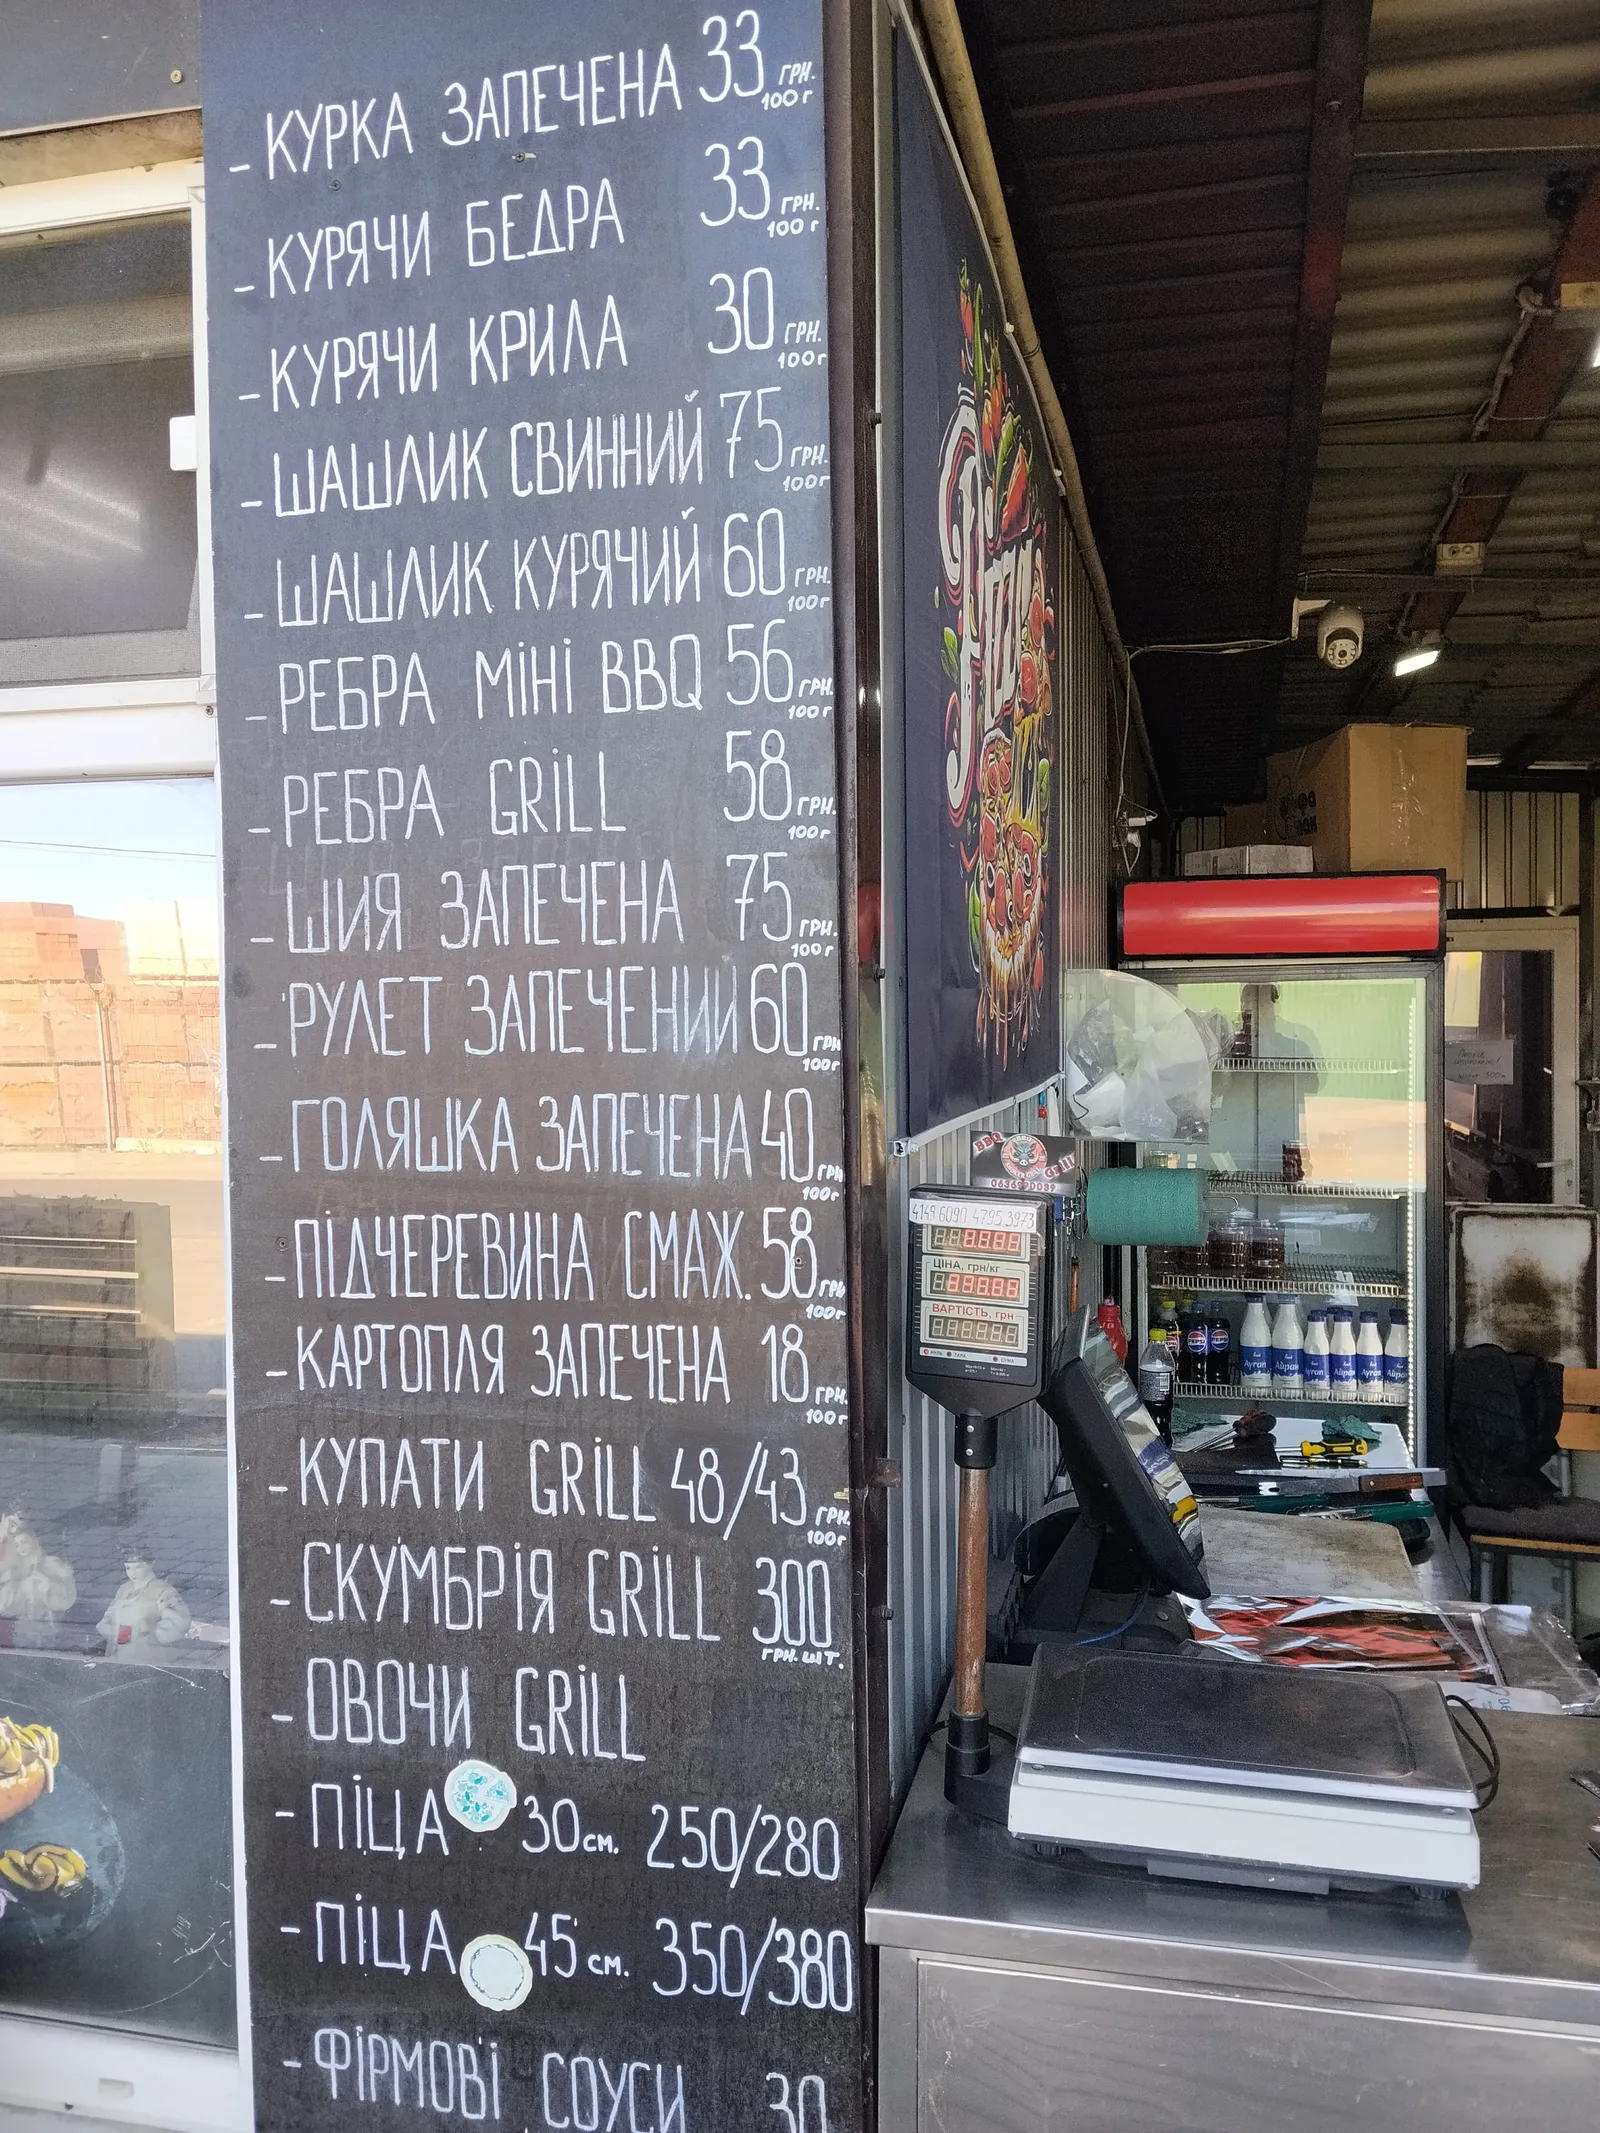 - КУРКА ЗАПЕЧЕНА 33 ГРН. 100 г
- КУРЯЧИ БЕДРА 33 ГРН. 100 г
- КУРЯЧИ КРИЛА 30 ГРН. 100 г
- ШАШЛИК СВИННИЙ 75 ГРН. 100 г
- ШАШЛИК КУРЯЧИЙ 60 ГРН. 100 г
- РЕБРА МіНі BBQ 56 ГРН. 100 г
- РЕБРА GRiLL 58 ГРН. 100 г
- ШИЯ ЗАПЕЧЕНА 75 ГРН. 100 г
- РУЛЕТ ЗАПЕЧЕНИЙ 60 ГРН 100 г
- ГОЛЯШКА ЗАПЕЧЕНА 40 ГРН 100 г
- ПіДЧЕРЕВИНА СМАЖ. 58 ГРН 100 г
- КАРТОПЛЯ ЗАПЕЧЕНА 18 ГРН. 100 г
- КУПАТИ GRiLL 48/43 ГРН. 100 г
- СКУМБРіЯ GRiLL 300 ГРН. ШТ.
- ОВОЧИ GRiLL
- ПіЦА 30 см. 250/280
- ПіЦА 45 см. 350/380
- ФіРМОВі СОУСИ 30
PIZZA
BBQ Grill
0636990039
4149 6090 4795 3973
ЦІНА, грн/кг
ВАРТІСТЬ, грн
pepsi pepsi
Ayran Айран Ayran Айран Ayran Айран